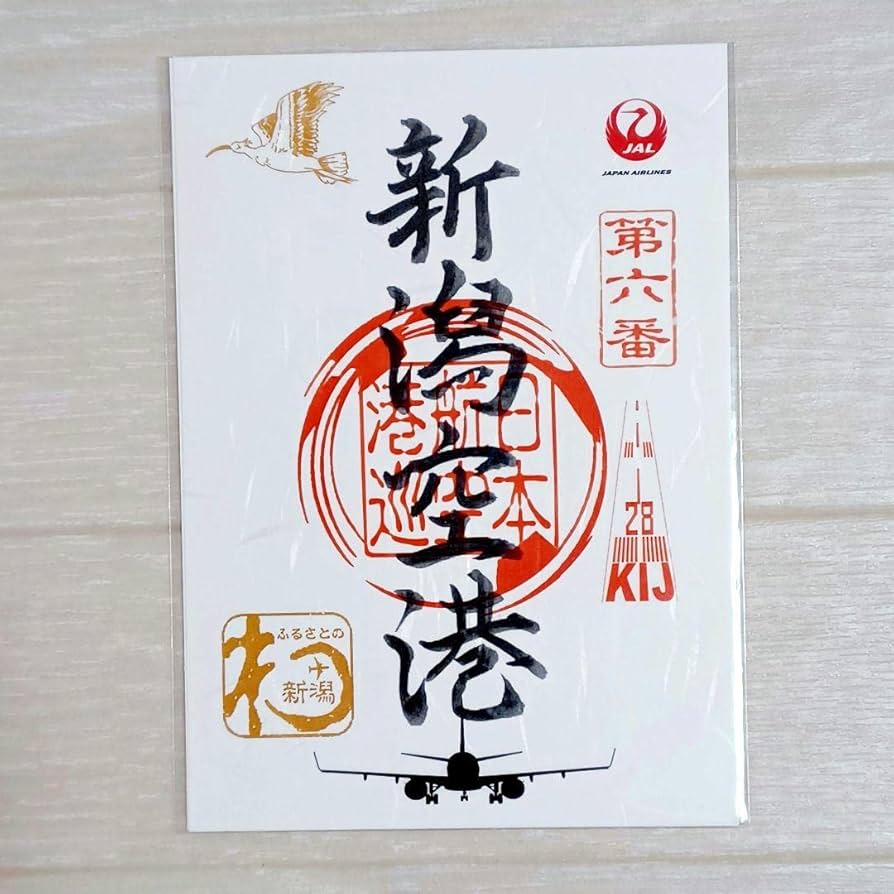 新潟空港
JAL
JAPAN AIRLINES
第六番
日本
空
港巡
28
KIJ
ふるさとの
新潟